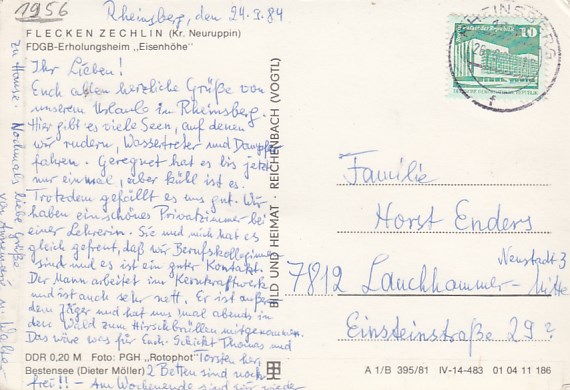 1956
Rheinsberg, den 24.9.84
FLECKEN ZECHLIN (Kr. Neuruppin)
FDGB-Erholungsheim „Eisenhöhe"
Ihr Lieben!
Euch allen herzliche Grüße von
unserem Urlaub in Rheinsberg.
Hier gibt es viele Seen, auf denen
wir rudern, Wassertreter und Dampfer
fahren. Geregnet hat es bis jetzt
nur einmal, aber kühl ist es.
Trotzdem gefällt es uns gut. Wir
haben ein schönes Privatzimmer bei
einer Lehrerin. Sie und mich hat es
gleich gefreut, daß wir Berufskolleginnen
sind und es ist ein guter Kontakt.
Der Mann arbeitet im Kernkraftwerk
und ist auch sehr nett. Er ist außer
dem Jäger und hat uns mal abends in
den Wald zum Hirschbrüllen mitgenommen.
Das wäre was für Euch. Schickt Thomas und
Torsten her,
2 Betten sind noch
frei!! – Am Wochenende sind wir wieder
zu Hause. Nochmals liebe Grüße
von Annemarie u. Walter
DDR 0,20 M Foto: PGH „Rotophot"
Bestensee (Dieter Möller)
BILD UND HEIMAT · REICHENBACH (VOGTL)
RHEINSBERG
10
Familie
Horst Enders
Neustadt 3
7812 Lauchhammer-Mitte
Einsteinstraße 29?
A 1/B 395/81 IV-14-483 01 04 11 186